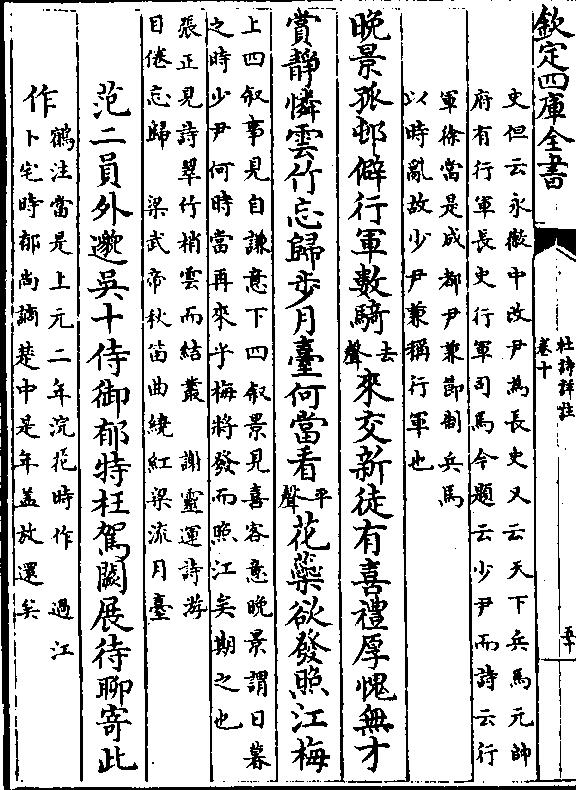 欽定四庫全書
杜詩詳註
卷十
史但云永徽中改尹為長史又云天下兵馬元帥
府有行軍長史行軍司馬今題云少尹而詩云行
軍徐當是成都尹兼節制兵馬
以時亂故少尹兼稱行軍也
晚景孤邨僻行軍數騎去聲來交新徒有喜禮厚愧無才
賞靜憐雲竹忘歸步月臺何當看平聲花蘂欲發照江梅
上四叙事見自謙意下四叙景見喜客意晚景謂日暮
之時少尹何時當再來乎梅將發而照江矣期之也
張正見詩翠竹梢雲而結叢 謝靈運詩游
目倦忘歸 梁武帝秋笛曲繞紅梁流月臺
范二員外邈吳十侍御郁特枉駕闕展待聊寄此
作
鶴注當是上元二年浣花時作 過江
卜宅時郁尚謫楚中是年盖放還矣